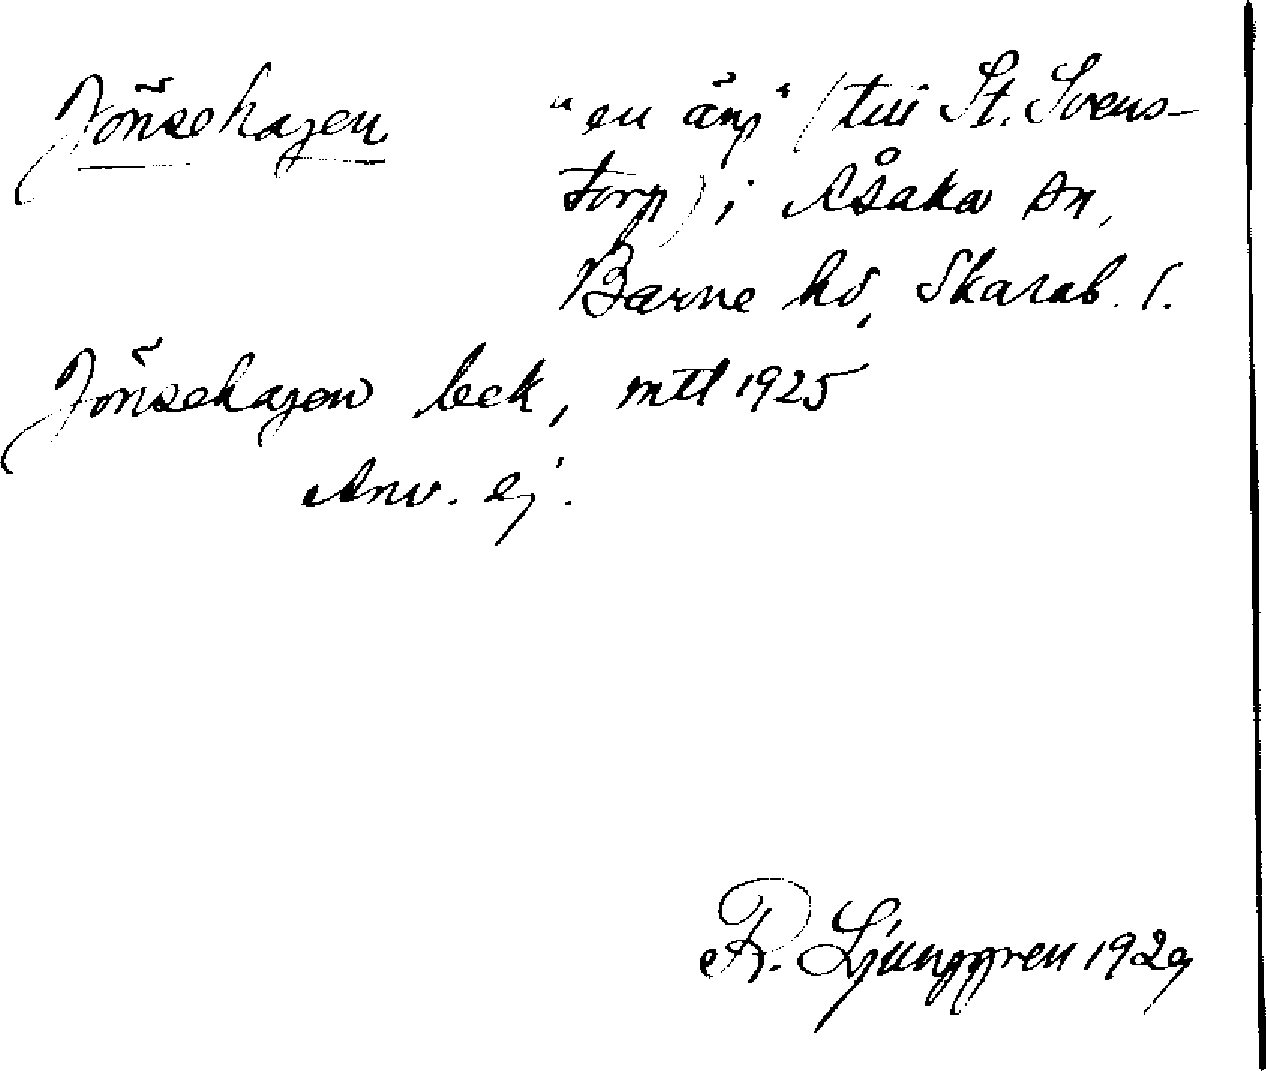 Jönsehagen "en äng" (till St. Svens-
torp); Åsaka sn,
Barne hd, Skarab. l.
Jönsehagen beck, mtl 1925
Anv. ej.
R. Ljunggren 1929